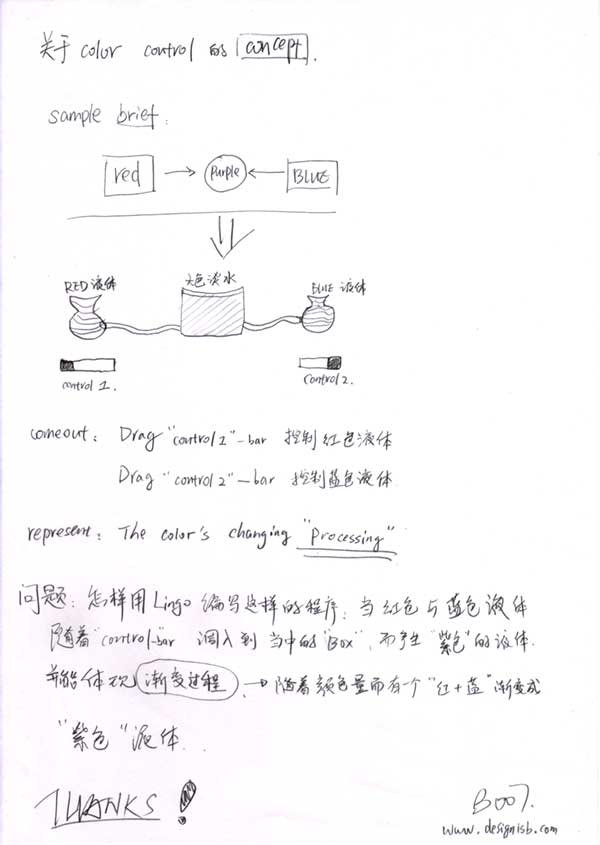 关于 color control 的 concept.
sample brief:
red → purple ← BLUE
RED 液体 无色淡水 BLUE 液体
control 1. control 2.
comeout: Drag "control 1"-bar 控制红色液体
Drag "control 2"-bar 控制蓝色液体
represent: The color's changing "processing"
问题: 怎样用 Lingo 编写这样的程序: 当红色与蓝色液体
随着"control"-bar 调入到当中的"Box", 而产生"紫色"的液体.
并能体现 渐变过程 . → 随着颜色量而有个"红+蓝"渐变成
"紫色"液体.
THANKS!
B007.
www.designisb.com